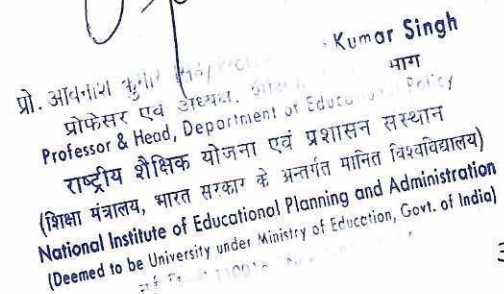 प्रो. अविनाश कुमार Kumar Singh
प्रोफेसर एवं अध्यक्ष, भाग
Professor & Head, Department of Educational Policy
राष्ट्रीय शैक्षिक योजना एवं प्रशासन संस्थान
(शिक्षा मंत्रालय, भारत सरकार के अन्तर्गत मानित विश्वविद्यालय)
National Institute of Educational Planning and Administration
(Deemed to be University under Ministry of Education, Govt. of India)
110016